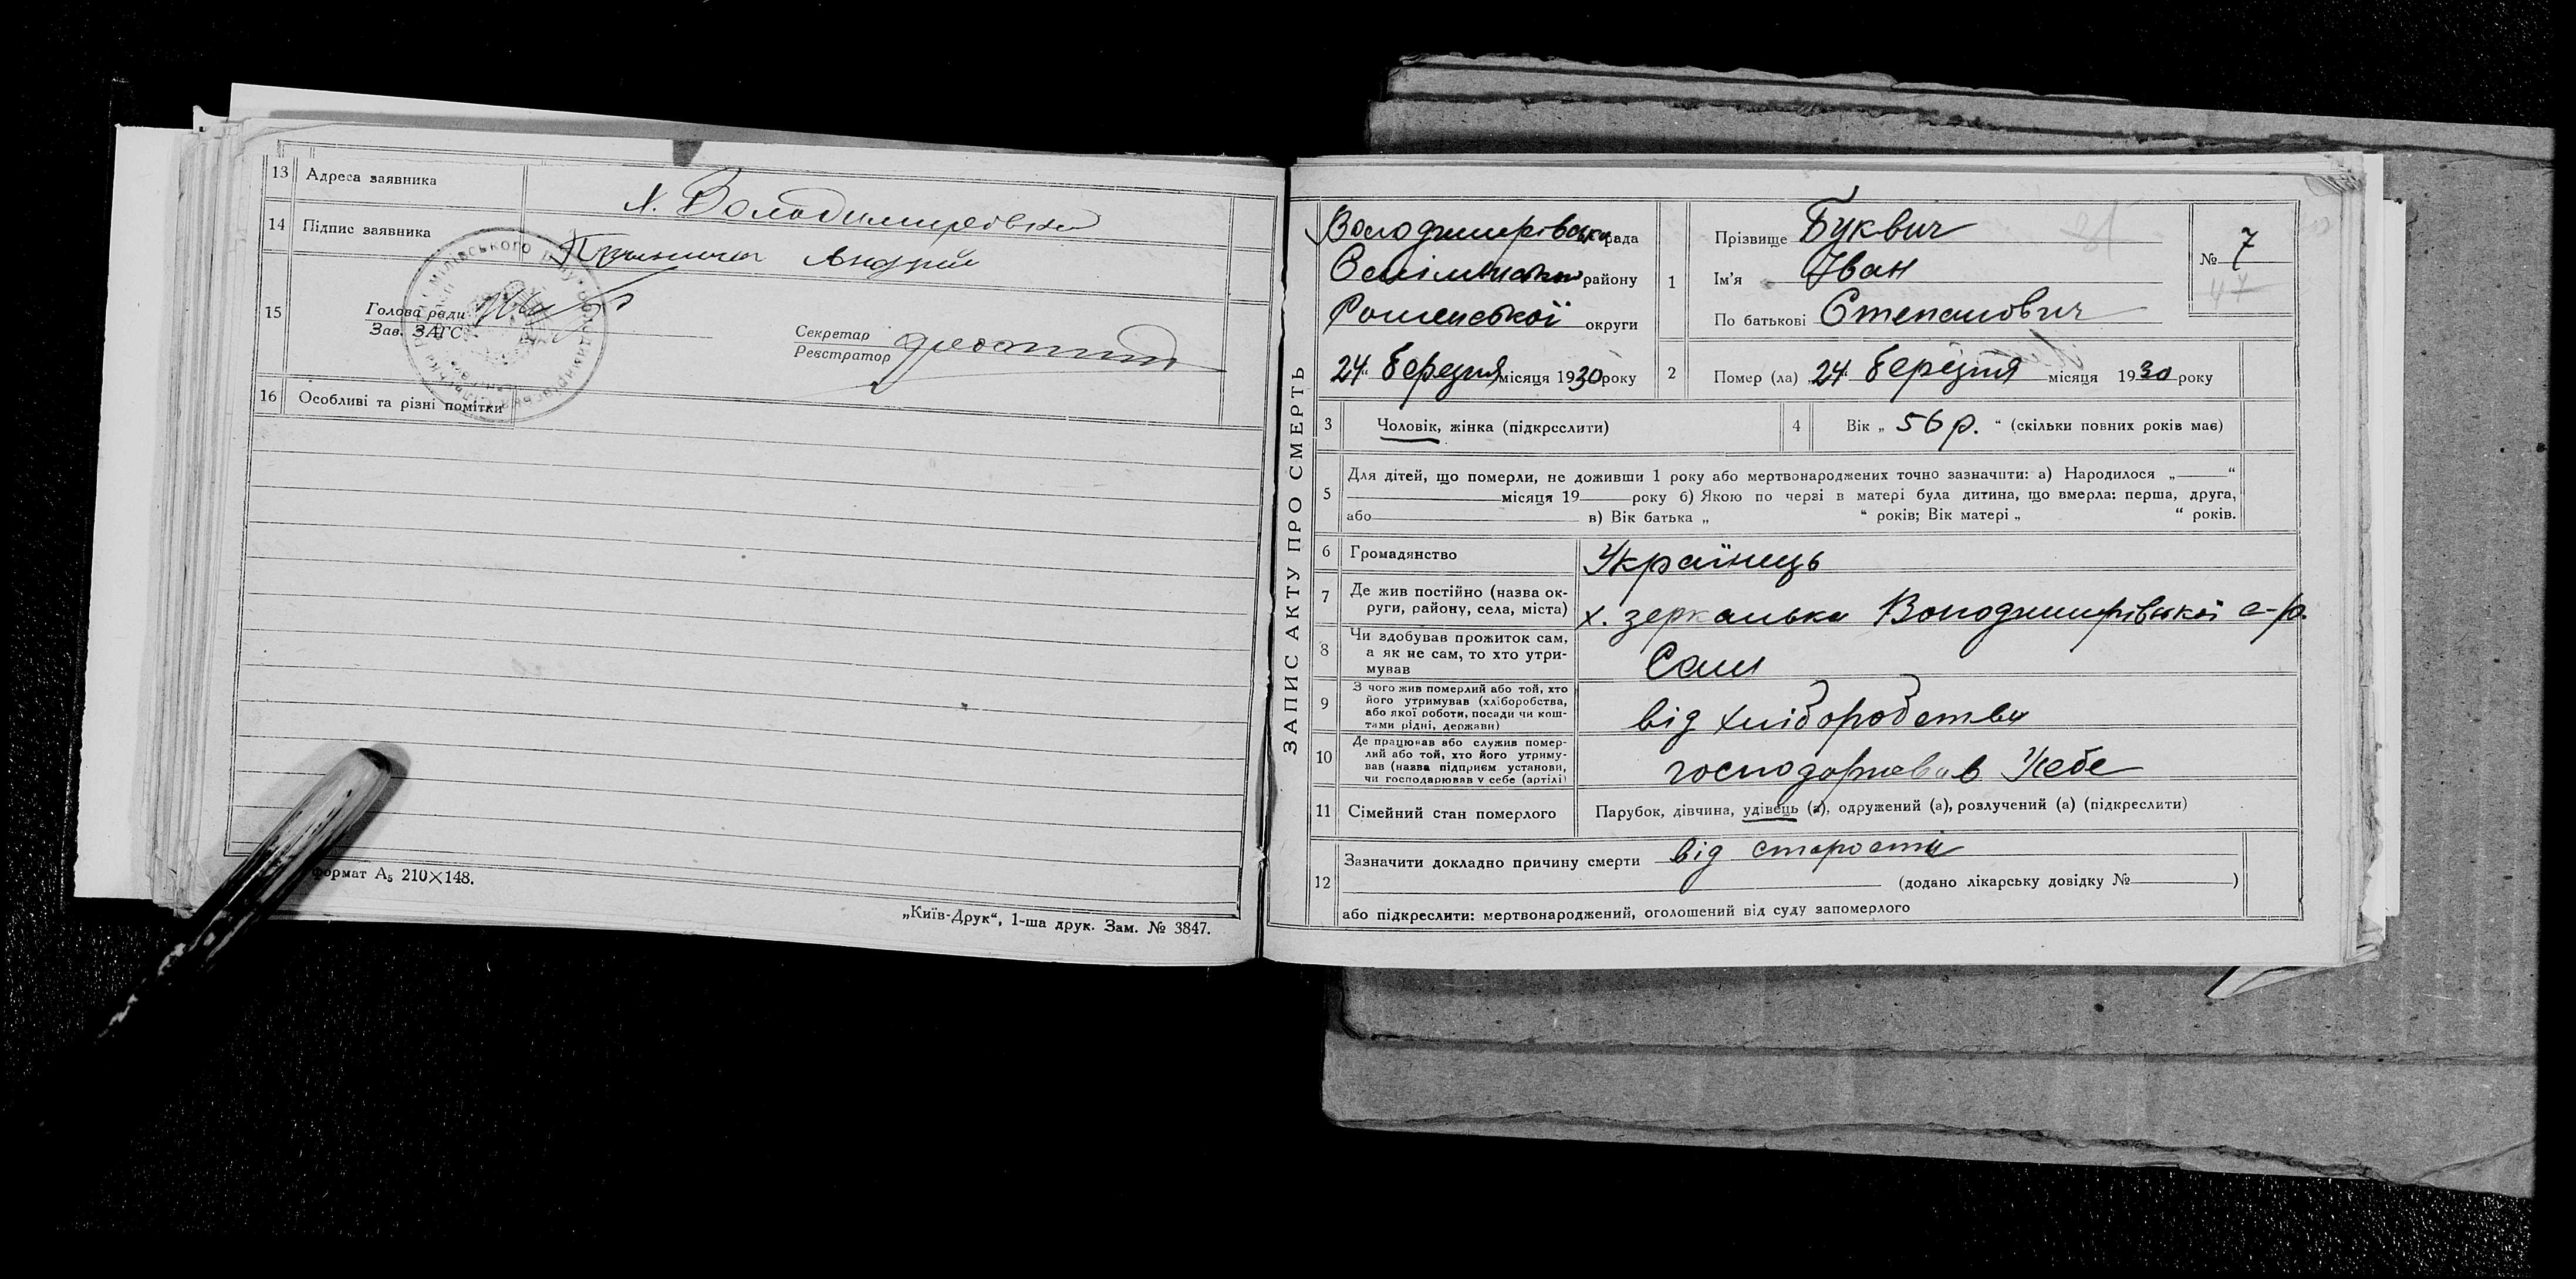 13 Адреса заявника
х. Володимирівка
14 Підпис заявника
Андрій
15
Голова ради
Зав. ЗАГС
Секретар
Реєстратор
16 Особливі та різні помітки
Формат А₅ 210×148.
„Київ-Друк“, 1-ша друк. Зам. № 3847.
ЗАПИС АКТУ ПРО СМЕРТЬ
Володимирівська рада
району
Роменської округи
24 березня місяця 1930 року
1
Прізвище Буквич
Ім'я Іван
По батькові Степанович
№ 7
47
2 Помер (ла) „24“ березня місяця 1930 року
3 Чоловік, жінка (підкреслити)
4 Вік „ 56 р. “ (скільки повних років має)
5 Для дітей, що померли, не доживши 1 року або мертвонароджених точно зазначити: а) Народилося „ “
місяця 19 року б) Якою по черзі в матері була дитина, що вмерла: перша, друга,
або в) Вік батька „ “ років; Вік матері „ “ років.
6 Громадянство Українець
7 Де жив постійно (назва ок-
руги, району, села, міста) х. Зеркалька Володимирівської с-р.
8 Чи здобував прожиток сам,
а як не сам, то хто утри-
мував Сам
9 З чого жив померлий або той, хто
його утримував (хліборобства,
або якої роботи, посади чи кош-
тами рідні, держави) від хліборобства
10 Де працював або служив помер-
лий або той, хто його утриму-
вав (назва підприєм. установи,
чи господарював у себе (артілі) господарював У себе
11 Сімейний стан померлого Парубок, дівчина, удівець (а), одружений (а), розлучений (а) (підкреслити)
12 Зазначити докладно причину смерти від старости
(додано лікарську довідку № )
або підкреслити: мертвонароджений, оголошений від суду запомерлого